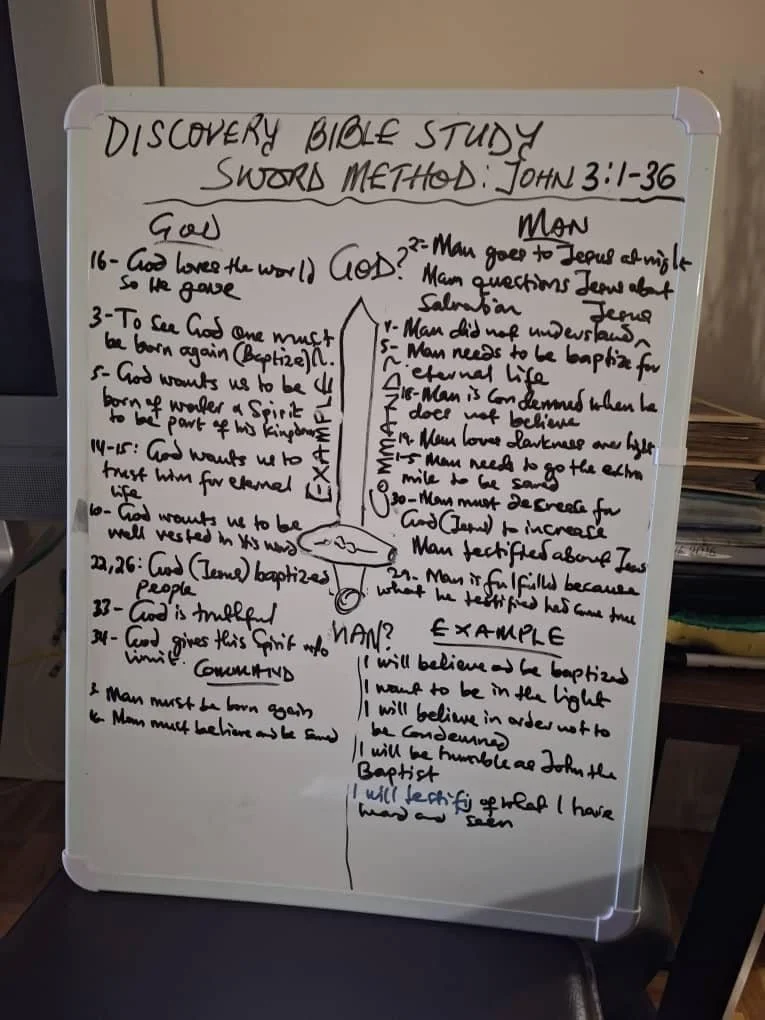 DISCOVERY BIBLE STUDY
SWORD METHOD: JOHN 3:1-36
GOD
16- God loves the world
so He gave
3- To see God one must
be born again (Baptize)
5- God wants us to be
born of water & Spirit
to be part of his kingdom
14-15: God wants us to
trust him for eternal
life
10- God wants us to be
well vested in His word
22,26: God (Jesus) baptized
people
33- God is truthful
34- God gives this Spirit w/o
limit.
COMMAND
3 Man must be born again
16 Man must believe and be saved
GOD?
EXAMPLE
COMMAND
MAN?
MAN
2- Man goes to Jesus at night
Man questions Jesus about
Salvation
Jesus
4- Man did not understand
5- Man needs to be baptize for
eternal life
18- Man is condemned when he
does not believe
19- Man loves darkness over light
1-5 Man needs to go the extra
mile to be saved
30- Man must decrease for
God (Jesus) to increase
Man testified about Jesus
29- Man is fulfilled because
what he testified had come true
EXAMPLE
I will believe and be baptized
I want to be in the light
I will believe in order not to
be condemned
I will be humble as John the
Baptist
I will testify of what I have
heard and seen